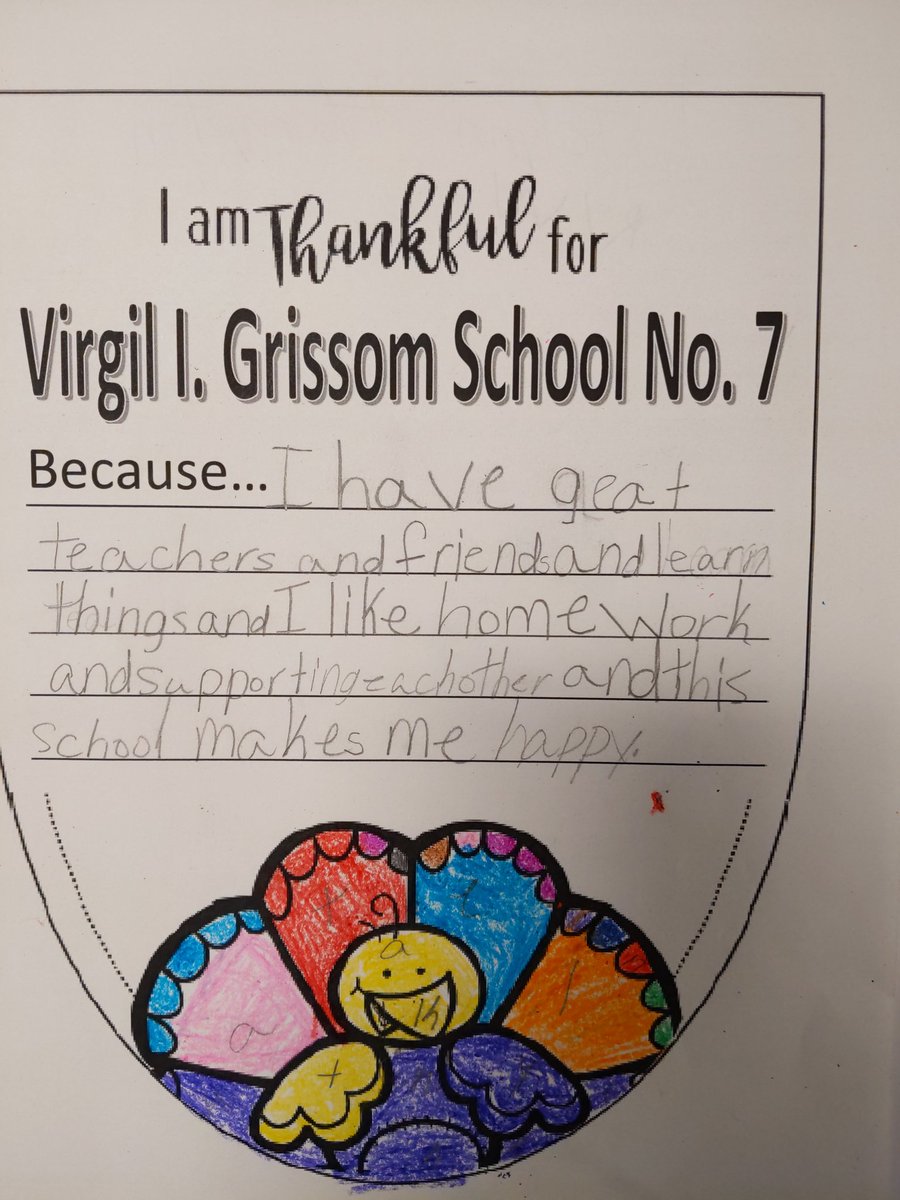 I am Thankful for
Virgil I. Grissom School No. 7
Because... I have geat
teachers and friends and learn
things and I like home work
and supporting each other and this
school makes me happy.